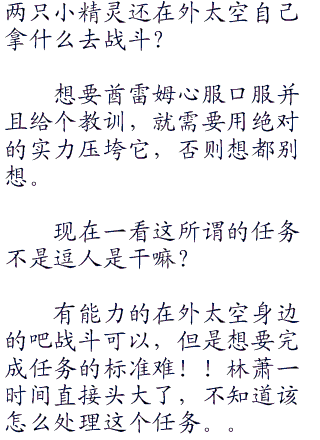 两只小精灵还在外太空自己
拿什么去战斗？
想要酋雷姆心服口服并
且给个教训，就需要用绝对
的实力压垮它，否则想都别
想。
现在一看这所谓的任务
不是逗人是干嘛？
有能力的在外太空身边
的吧战斗可以，但是想要完
成任务的标准难！！林萧一
时间直接头大了，不知道该
怎么处理这个任务。。